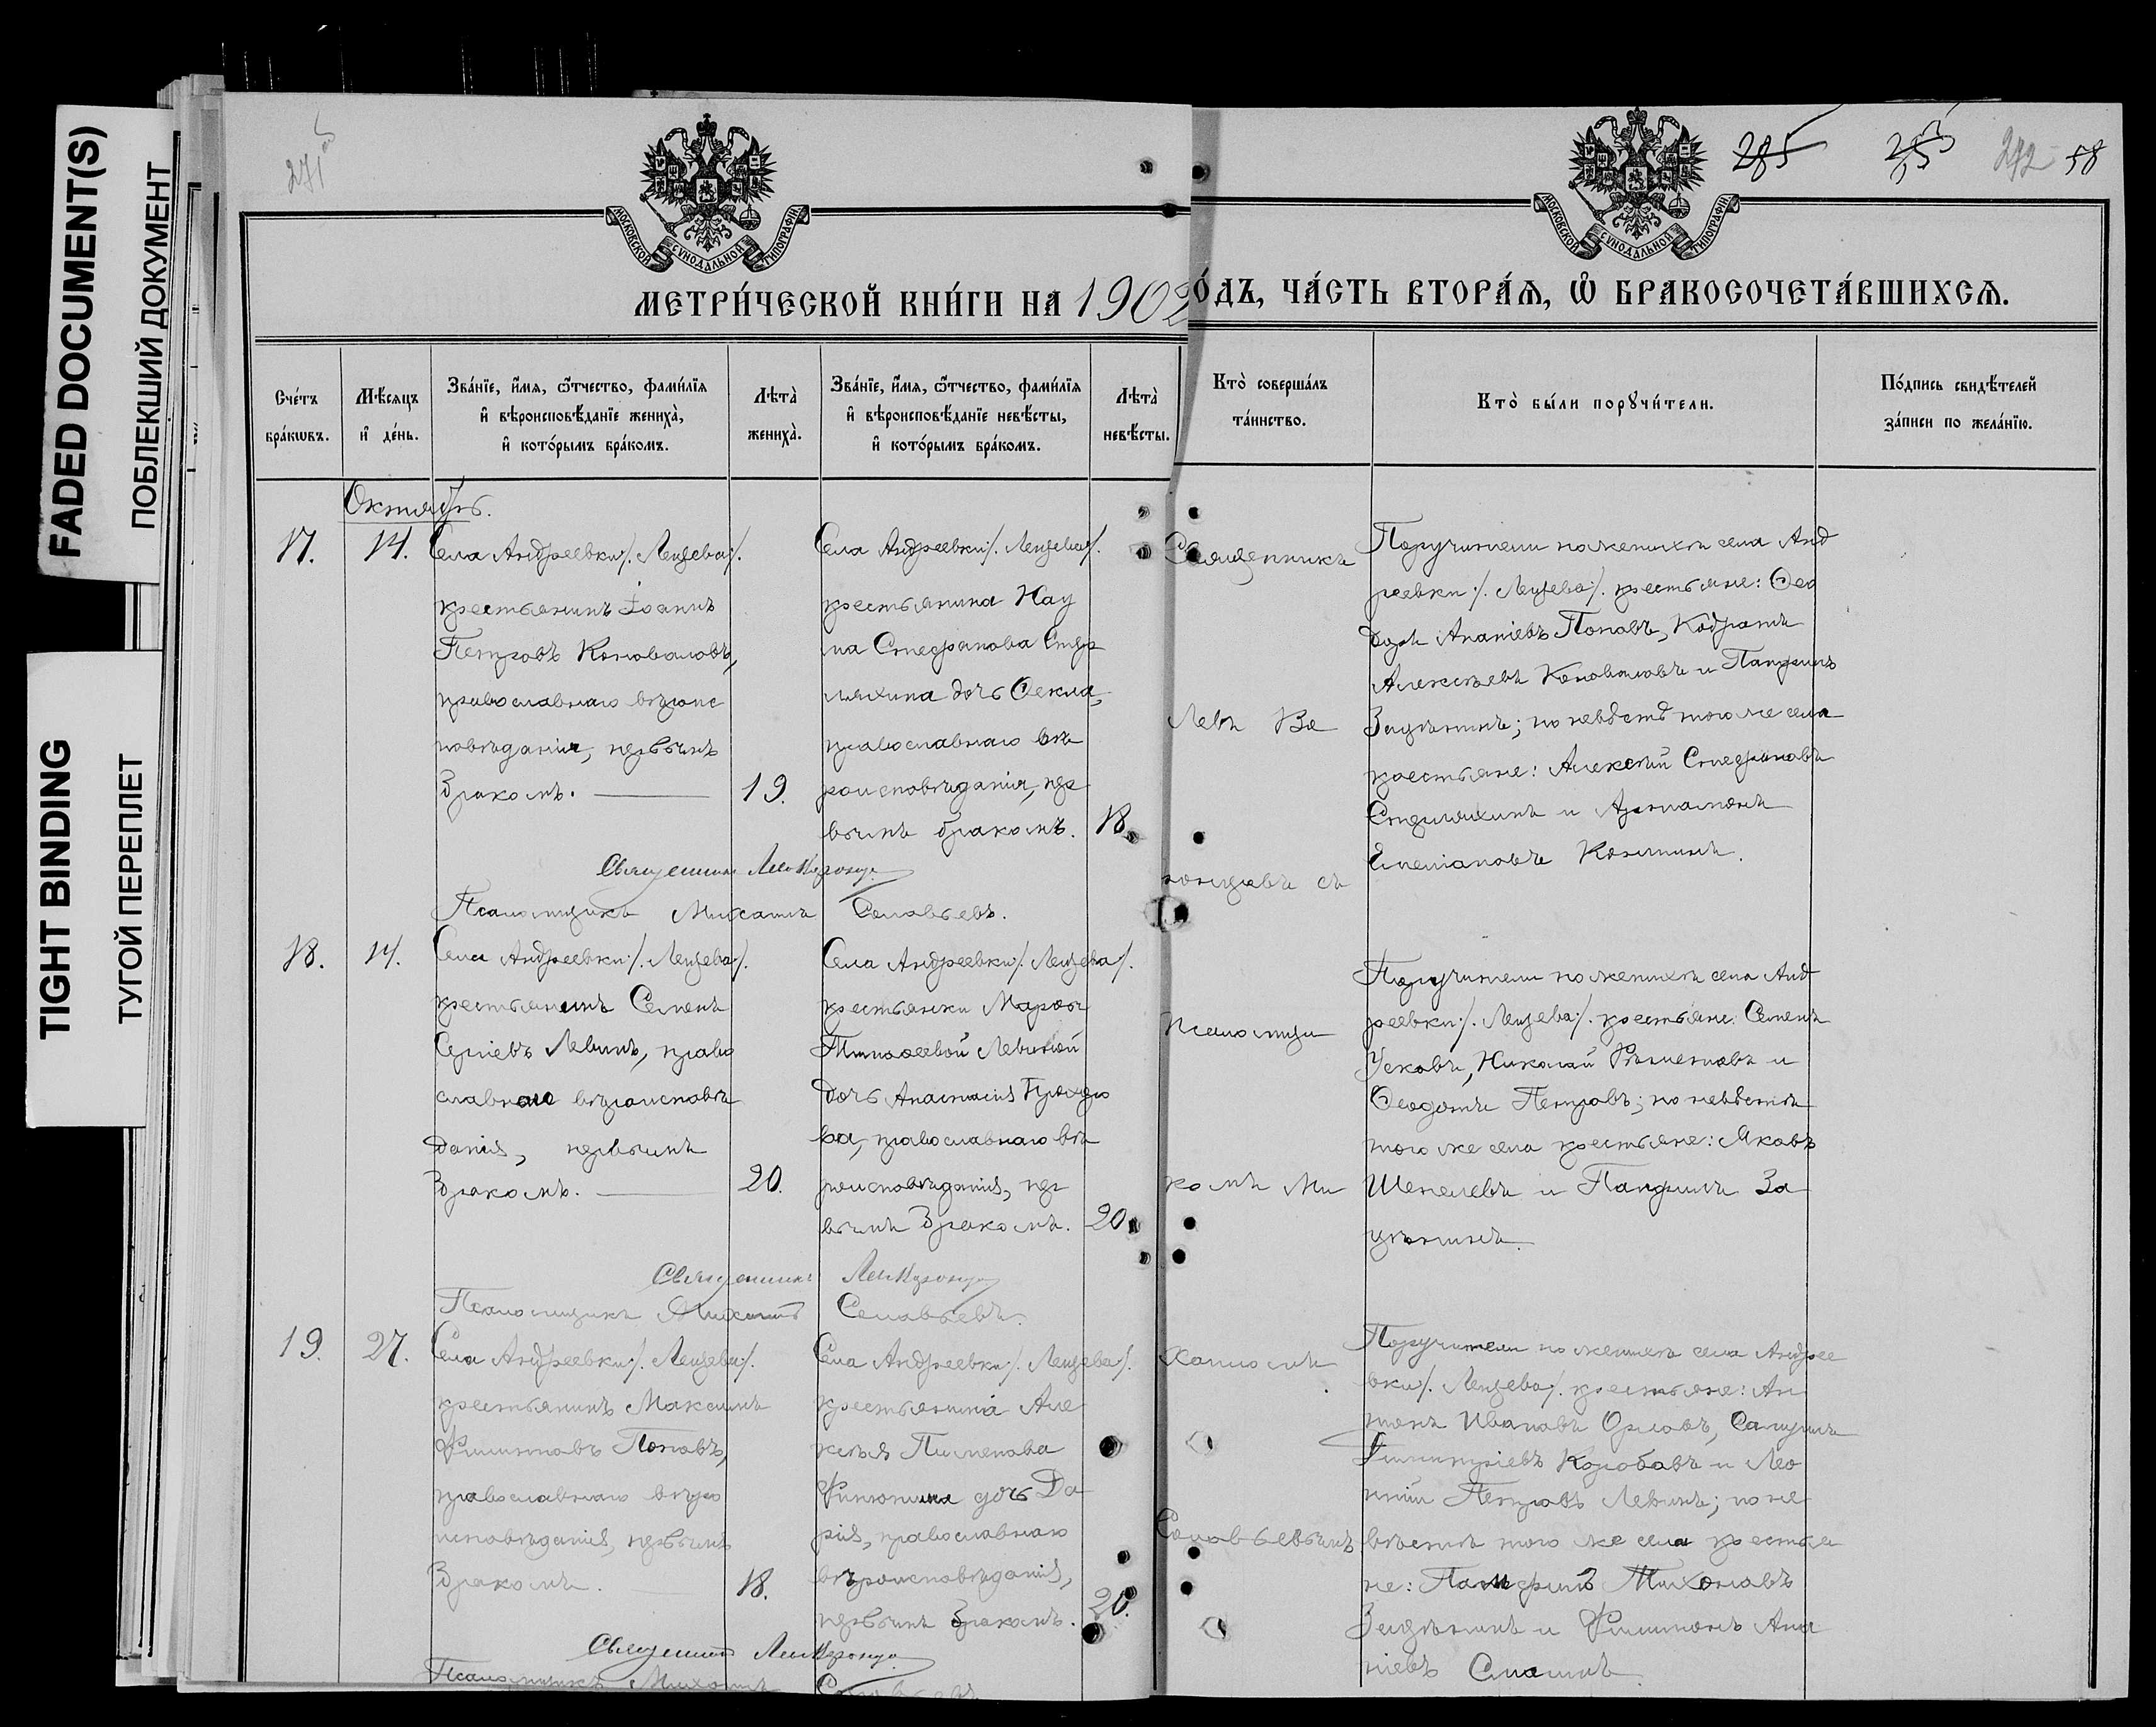 FADED DOCUMENT(S)
ПОБЛЕКШИЙ ДОКУМЕНТ
TIGHT BINDING
ТУГОЙ ПЕРЕПЛЕТ
271 об
285
272 58
МОСКОВСКОЙ СѴНОДАЛЬНОЙ ТИПОГРАФІИ
МОСКОВСКОЙ СѴНОДАЛЬНОЙ ТИПОГРАФІИ
МЕТРИ́ЧЕСКОЙ КНИ́ГИ НА 1902
О́ДЪ, ЧА́СТЬ ВТОРА́Ѧ, Ѡ҆ БРАКОСОЧЕТА́ВШИХСѦ.
Сче́тъ бра́кѡвъ.
Мѣ́сяцъ и҆ де́нь.
Зва́нїе, и҆́мя, ѻ҆́тчество, фами́лїя
и҆ вѣроисповѣ́данїе жениха̀,
и҆ кото́рымъ бра́комъ.
Лѣта̀ жениха̀.
Зва́нїе, и҆́мя, ѻ҆́тчество, фами́лїя
и҆ вѣроисповѣ́данїе невѣ́сты,
и҆ кото́рымъ бра́комъ.
Лѣта̀ невѣ́сты.
Кто̀ соверша́лъ
та́инство.
Кто̀ бы́ли порꙋчи́тели.
По́дпись свидѣ́телей
за́писи по жела́нїю.
Октябрь.
17. 14.
Села Андреевки /. Лещева /.
крестьянинъ Іоаннъ
Петровъ Коноваловъ,
православнаго вѣроис
повѣданія, первымъ
бракомъ. 19.
Села Андреевки /. Лещева /.
крестьянина Нау
ма Стефанова Стр
мяхина дочь Ѳекла,
православнаго вѣ
роисповѣданія, пер
вымъ бракомъ. 18.
Священникъ
Левъ Во
ронцовъ съ
псаломщи
комъ Ми
хаиломъ
Соловьевымъ
Поручители по женихѣ села Анд
реевки /. Лещева /. крестьяне: Ѳео
доръ Ананіевъ Поповъ, Кодратъ
Алексѣевъ Коноваловъ и Панфилъ
Зацѣпинъ; по невѣстѣ того же села
крестьяне: Алексѣй Стефановъ
и Артамонъ
Емеліановъ
Священникъ Левъ Воронцовъ
Псаломщикъ Михаилъ Соловьевъ.
18. 14.
Села Андреевки /. Лещева /.
крестьянинъ Семенъ
Сергіевъ Левинъ, право
славнаго вѣроисповѣ
данія, первымъ
бракомъ. 20.
Села Андреевки /. Лещева /.
крестьянки Марѳы
Тимоѳеевой Левиной
дочь Анастасія Прохоро
ва, православнаго вѣ
роисповѣданія, пер
вымъ бракомъ. 20.
Поручители по женихѣ села Анд
реевки /. Лещева /. крестьяне: Семенъ
Усковъ, Николай и
Ѳеодотъ Петровъ; по невѣстѣ
того же села крестьяне: Яковъ
Шепелевъ и Панфилъ За
цѣпинъ.
Священникъ Левъ Воронцовъ
Псаломщикъ Михаилъ Соловьевъ.
19. 27.
Села Андреевки /. Лещева /.
крестьянинъ Максимъ
Филиповъ Поповъ,
православнаго вѣро
исповѣданія, первымъ
бракомъ. 18.
Села Андреевки /. Лещева /.
крестьянина Але
ксѣя Пименова
дочь Да
рія, православнаго
вѣроисповѣданія,
первымъ бракомъ. 20.
Поручители по женихѣ села Андрее
вки /. Лещева /. крестьяне: Ан
тонъ Ивановъ Орловъ, Самуилъ
Димитріевъ Коробовъ и Лео
нтій Петровъ Левинъ; по не
вѣстѣ того же села крестья
не: Памфилъ Тихоновъ
Зацѣпинъ и Филимонъ Ана
ніевъ
Священникъ Левъ Воронцовъ
Псаломщикъ Михаилъ Соловьевъ